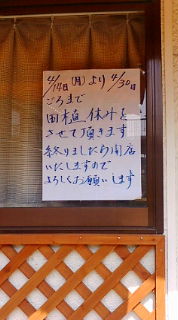 4/14日(月)より4/30日
ごろまで
田植休みを
させて頂きます
終りましたら開店
いたしますので
よろしくお願いします